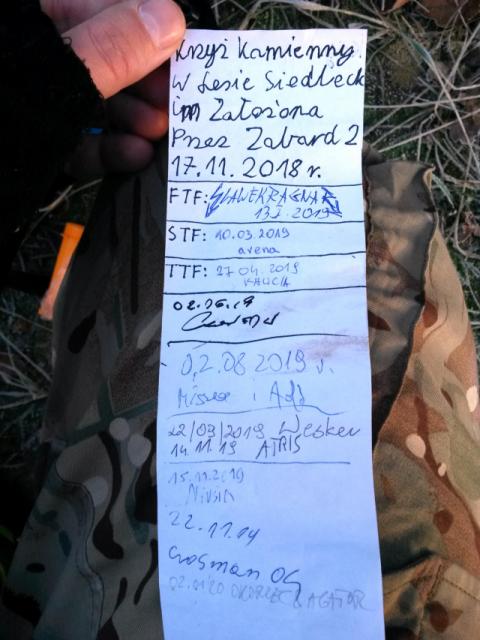 Krzyż Kamienny
W Lesie Siedleck
im Założona
Przez Zabard2
17.11.2018 r.
FTF: SLAWEKRAGNAR
13.I.2019
STF: 10.03.2019
avena
TTF: 27 04.2019
KAUCJA
0,2.08 2019 r.
i
22/09/2019 Wesker
14.11.19 ATRIS
15.11.2019
Nivsin
22.11.19
Grosman OG
02.01.20